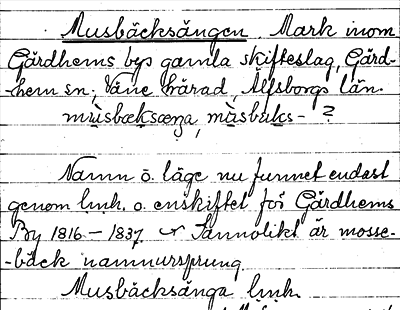 Musbäcksängen. Mark inom
Gärdhems bys gamla skifteslag, Gärd-
-hem sn; Väne härad, Älfsborgs län.
mùsbæksæŋa, mùsbaks- ?
Namn o. läge nu funnet endast
genom l.inh. o. enskiftet för Gärdhems
By 1816 – 1837. Sannolikt är mosse-
-bäck namnursprung.
Musbäcksänga l.inh.